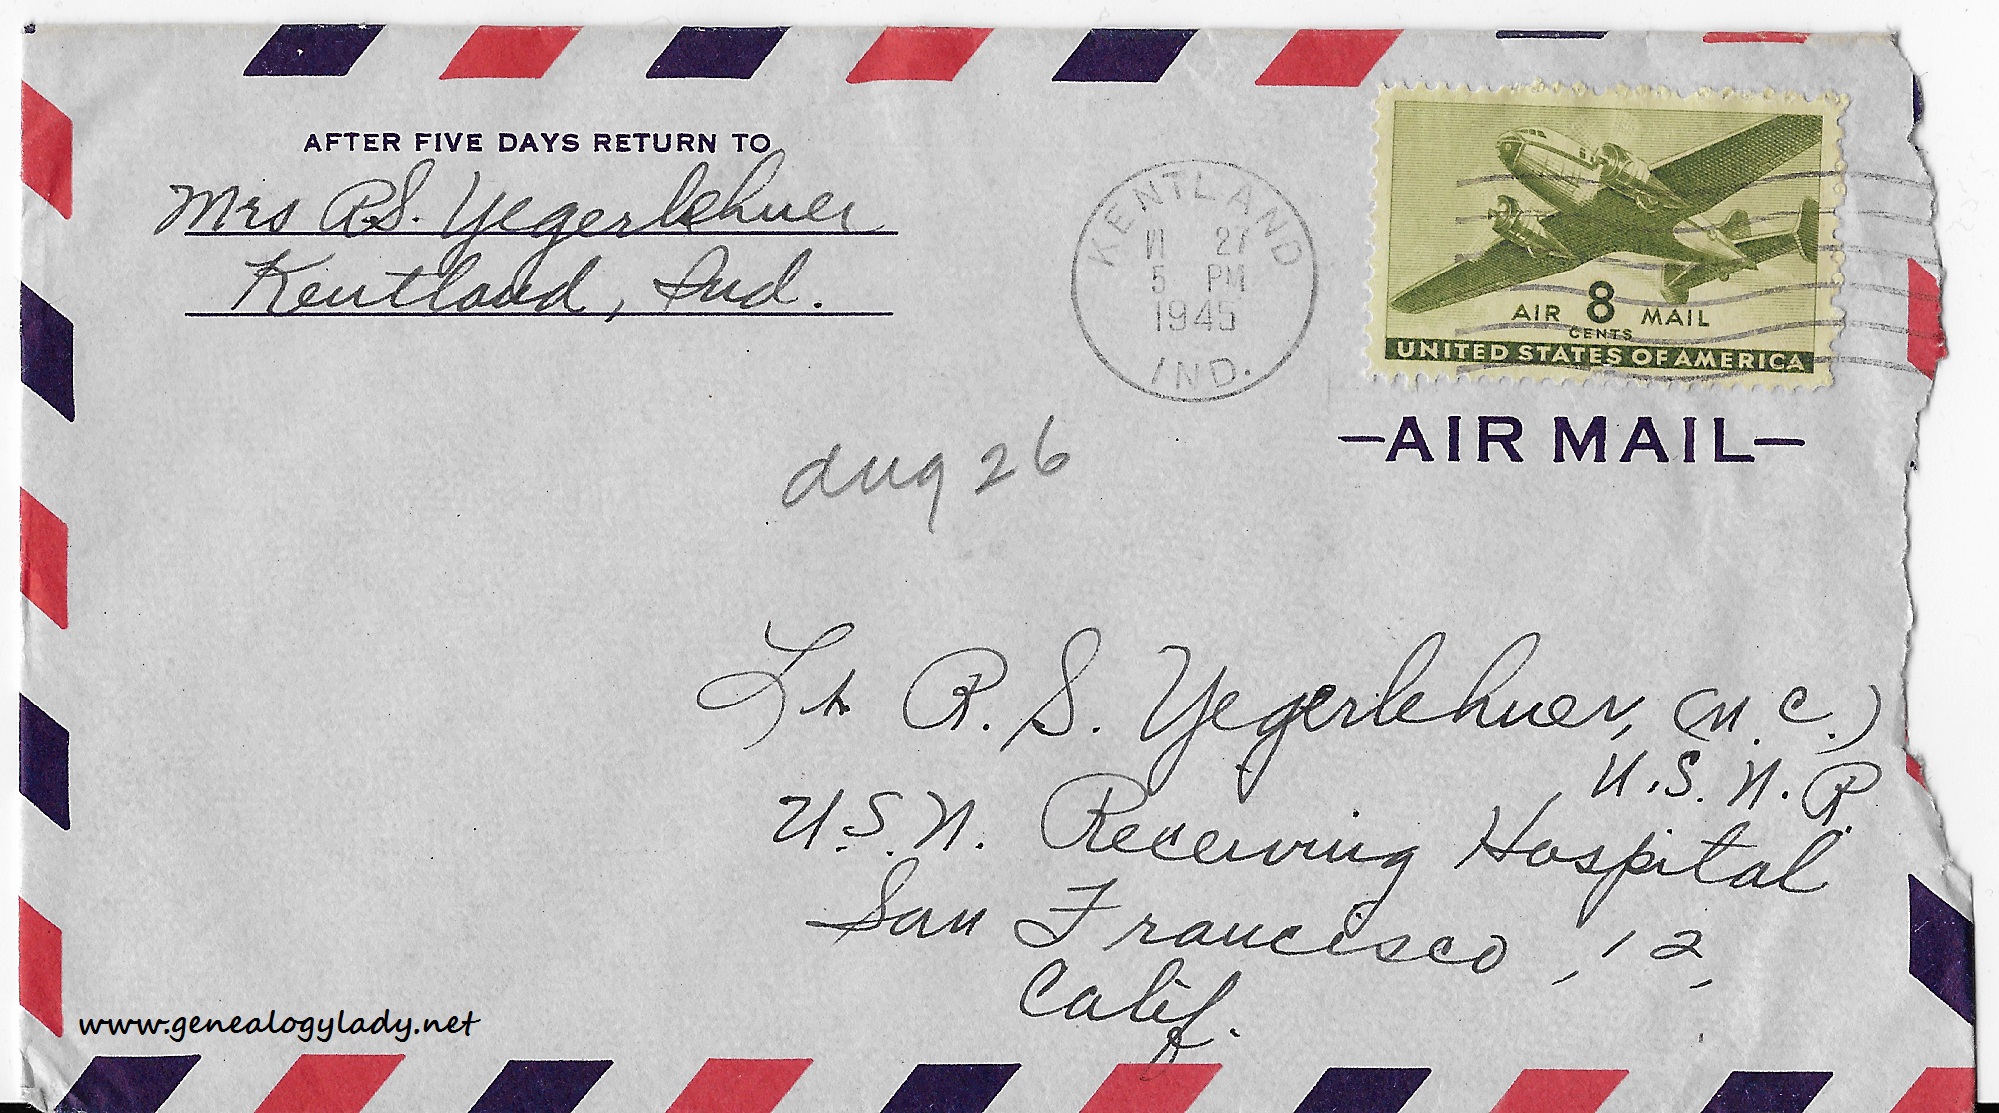 AFTER FIVE DAYS RETURN TO
Mrs R.S. Yegerlehner
Kentland, Ind.
KENTLAND
27
5 PM
1945
IND.
AIR 8 MAIL
CENTS
UNITED STATES OF AMERICA
—AIR MAIL—
Aug 26
Lt R. S. Yegerlehner, (M.C.)
U.S.N.R.
U.S.N. Receiving Hospital
San Francisco, 12,
Calif.
www.genealogylady.net